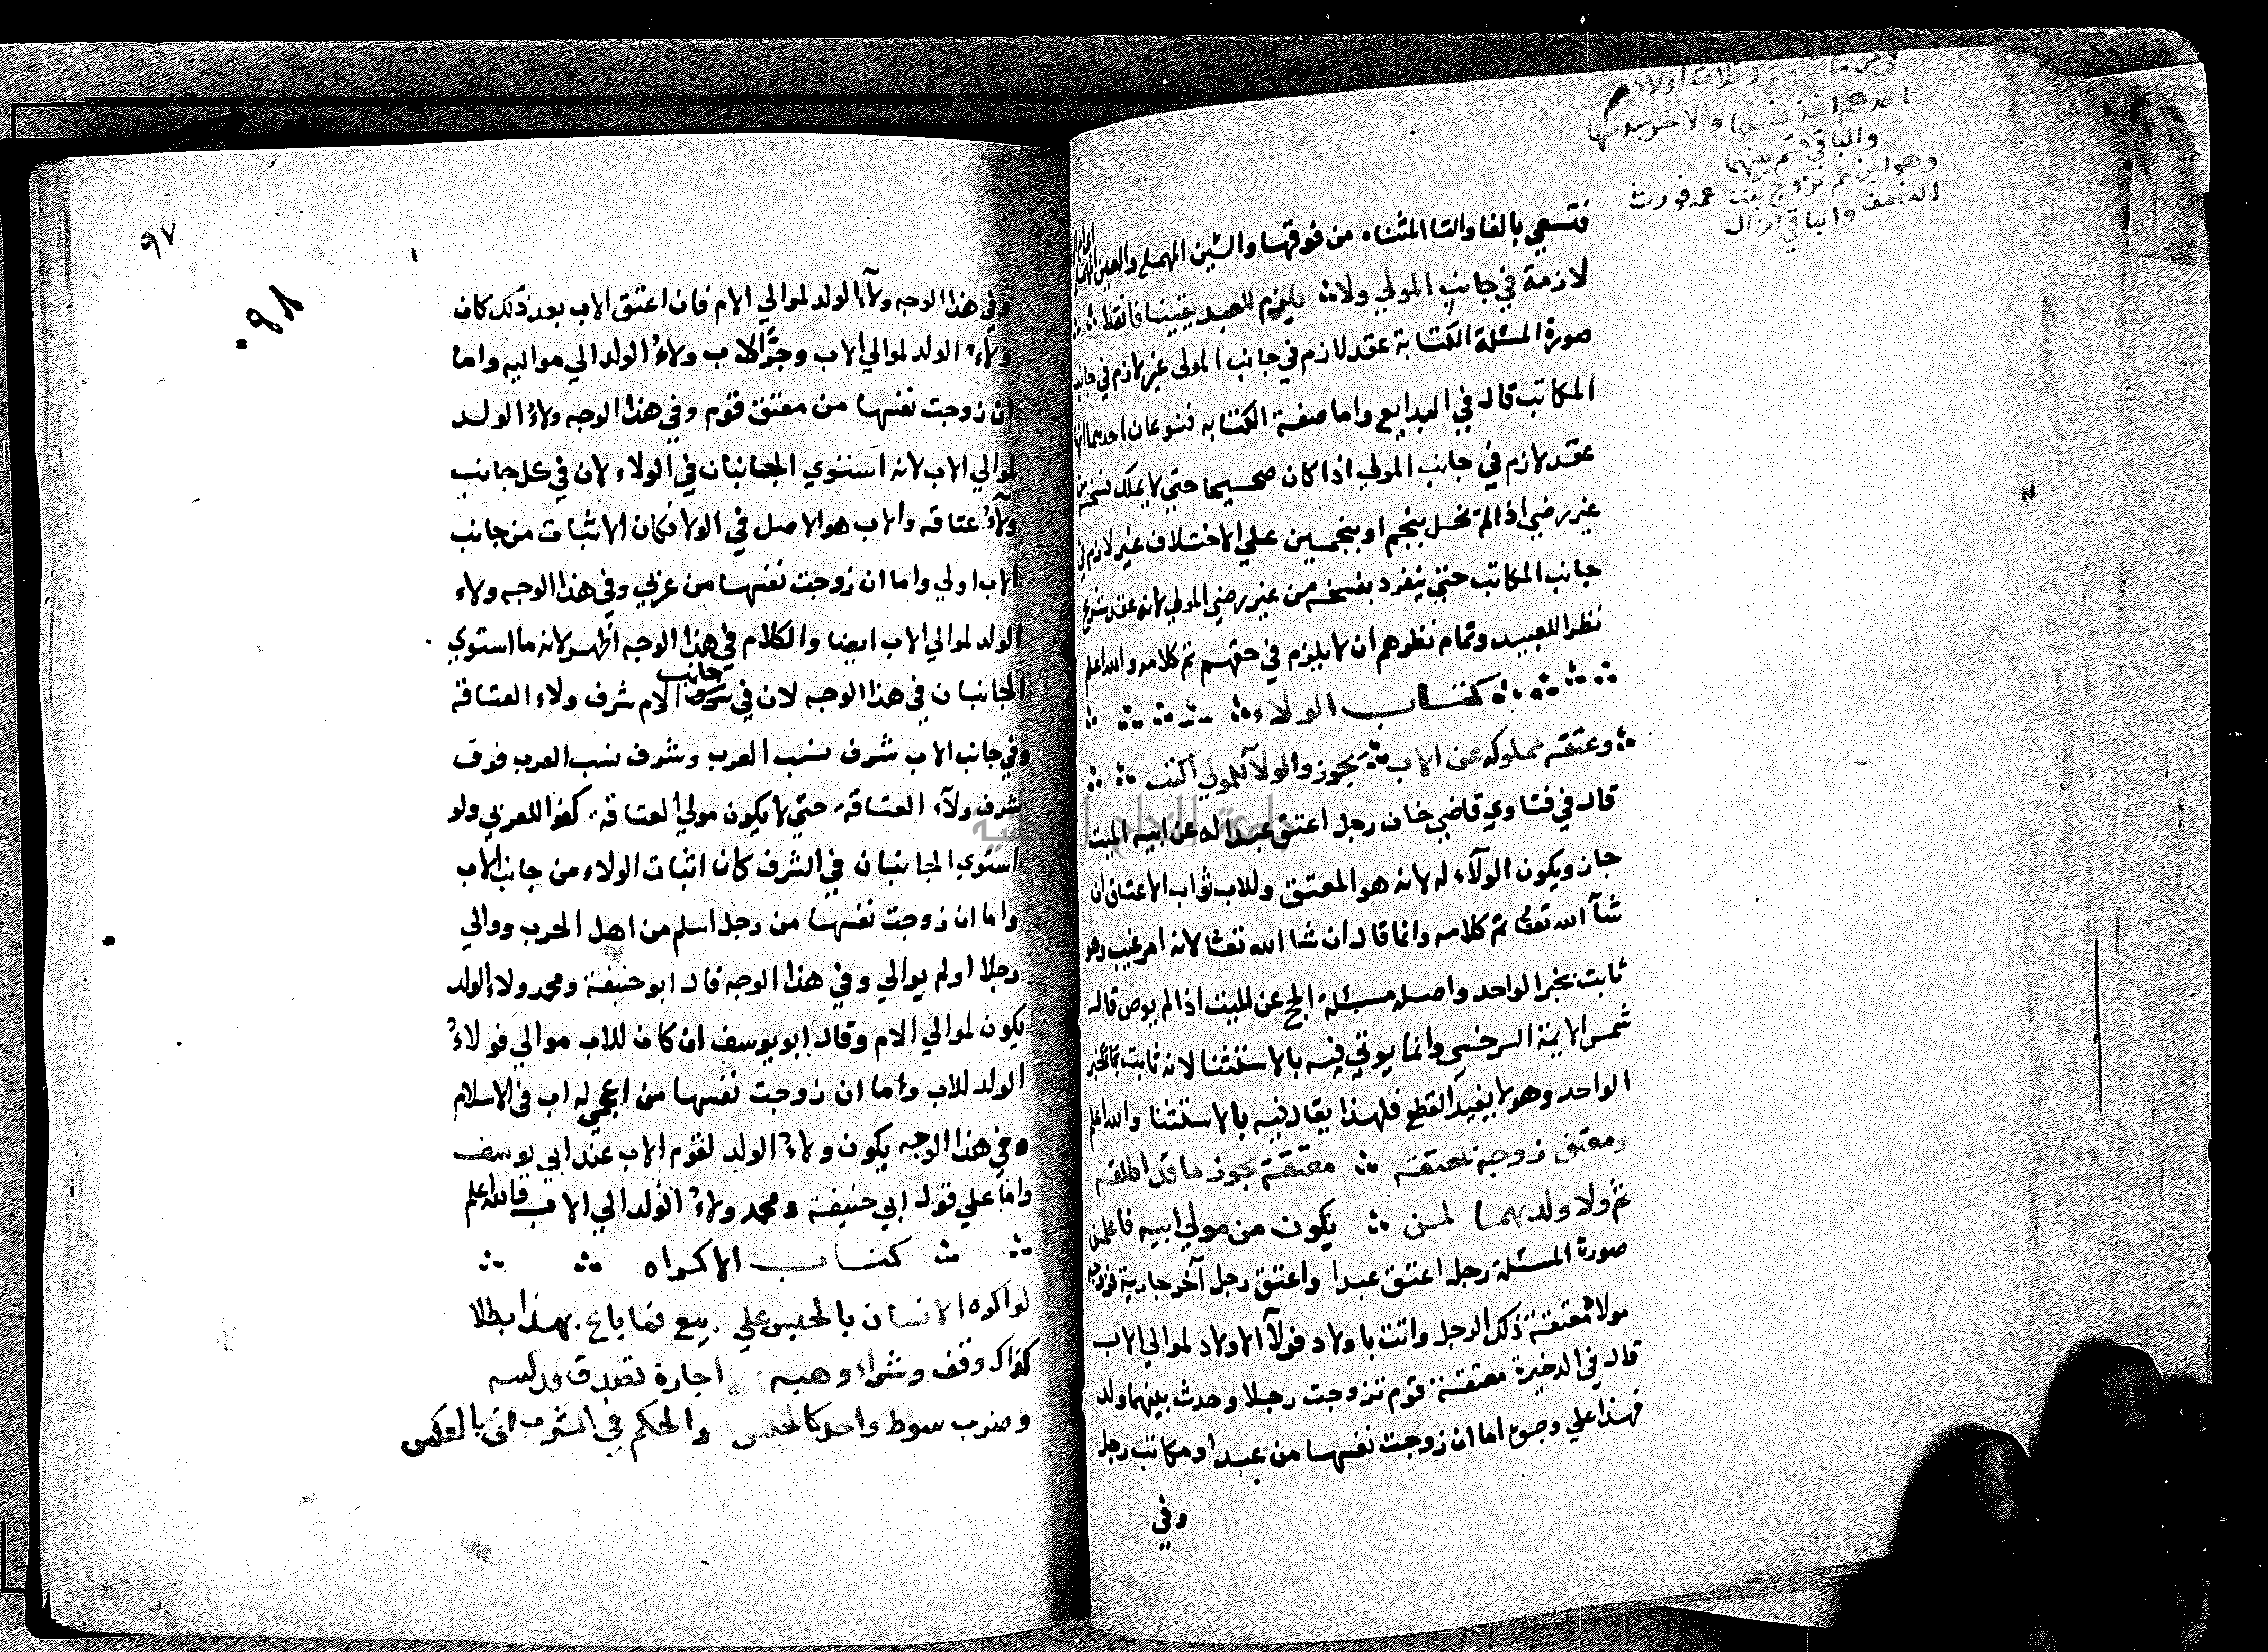 احدهم اخذ نصفها والاخر سدسها
والباقي قسم بينهما
وهو ابن عم تزوج بنت عمه فورث
النصف والباقي
فتسعي بالفا والتا المثناه من فوقها والسين المهملة والعين المهملة
لازمة في جانب المولي ولا يلزم للعبد يقينا فانقلا
صورة المسئلة الكتابة عقد لازم في جانب المولى غير لازم في جانب
المكاتب قال في البدايع واما صفة الكتابه فنوعان احدهما انها
عقد لازم في جانب المولي اذا كان صحيحا حتي لا يملك فسخه من
غير رضي اذا لم تحل بنجم او بنجمين علي الاختلاف غير لازم في
جانب المكاتب حتي ينفرد بفسخه من غير رضي المولي لانه عقد شرع
نظرا للعبيد وتمام نظرهم ان لا يلزم في حقهم تم كلامه والله اعلم
كتاب الولاء
وعتقه مملوكه عن الاب يجوز والولآ للمولي اكتب
قال في فتاوي قاضي خان رجل اعتق عبدا له عن ابيه الميت
جاز ويكون الولآء له لانه هو المعتق وللاب ثواب الاعتاق ان
شآ الله تعالى تم كلامه وانما قال ان شا الله تعالى لانه امر غيب وهو
ثابت بخبر الواحد واصله مسئلة الحج عن الميت اذا لم يوص قاله
شمس الايمة السرخسي وانما يوتي فيه بالاستثنا لانه ثابت بخبر
الواحد وهو لا يفيد القطع فلهذا يقال فيه بالاستثنا والله اعلم
ومعتق زوجة معتقه معتقة يجوز ما قد اطلقه
ثم ولا ولدهما لمن يكون من مولي ابيه فاعلمن
صورة المسئلة رجل اعتق عبدا واعتق رجل آخر جارية فزوجه
مولاه معتقة ذلك الرجل واتت باولاد فولآ الاولاد لموالي الاب
قال في الدخيرة معتقة قوم تزوجت رجلا وحدث بينهما ولد
فهذا علي وجوه اما ان زوجت نفسها من عبد او مكاتب رجل
وفي
٩٧
٩٨
وفي هذا الوجه ولآء الولد لموالي الام فان اعتق الاب بعد ذلك كان
ولاء الولد لموالي الاب وجر الاب ولاء الولد الي مواليه واما
ان زوجت نفسها من معتق قوم وفي هذا الوجه ولاء الولد
لموالي الاب لانه استوي الجانبان في الولاء لان في كل جانب
ولآء عتاقه والاب هو الاصل في الولا فكان الاثبات من جانب
الاب اولي واما ان زوجت نفسها من عربي وفي هذا الوجه ولاء
الولد لموالي الاب ايضا والكلام في هذا الوجه اظهر لانه ما استوي
الجانبان في هذا الوجه لان في جانب الام شرف ولاء العتاقة
وفي جانب الاب شرف نسب العرب وشرف نسب العرب فوق
شرف ولآء العتاقة حتي لا يكون مولي العتاقة كفوا للعربي ولو
استوي الجانبان في الشرف كان اثبات الولاء من جانب الاب
واما ان زوجت نفسها من رجل اسلم من اهل الحرب ووالي
رجلا او لم يوالي وفي هذا الوجه قال ابو حنيفة ومحمد ولاء الولد
يكون لموالي الام وقال ابو يوسف ان كان للاب موالي فولاء
الولد للاب واما ان زوجت نفسها من اعجمي له اب في الاسلام
وفي هذا الوجه يكون ولاء الولد لقوم الاب عند ابي يوسف
واما علي قول ابي حنيفة ومحمد ولاء الولد الي الاب فالله اعلم
كتاب الاكراه
لو اكره الانسان بالحبس علي بيع فما باع بهذا بطلا
كذاك وقف وشراء وهبه اجارة تصدق
وضرب سوط واحد كالحبس والحكم في الشرب اتى بالعكس